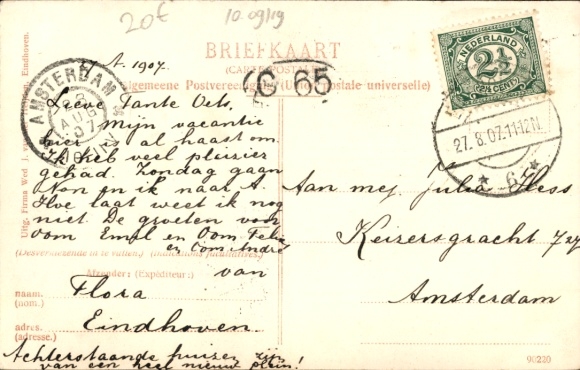 20€
10.09/19
5/A. 1907.
BRIEFKAART
(CARTE POSTALE)
Algemeene Postvereeniging (Union postale universelle)
G 65
NEDERLAND
2½
CENT
AMSTERDAM
AUG
07
27.8.07.11-12N
6
Lieve Tante Oets,
Mijn vacantie
is al haast om.
Ik heb veel pleizier
gehad. Zondag gaan
Non en ik naar A.
Hoe laat weet ik nog
niet. De groeten voor
Oom Emil en Oom Felix
en Oom André
(Desverlangende in te vullen) (Indications facultatives.)
Afzender: (Expéditeur:)
van
naam. Flora
(nom.)
adres. Eindhoven.
(adresse.)
Achterstaande huizen zijn
van een heel nieuw plein!
Aan mej. Julia Hess
Keizersgracht
Amsterdam
90220
Uitg. Firma Wed J. Eindhoven.